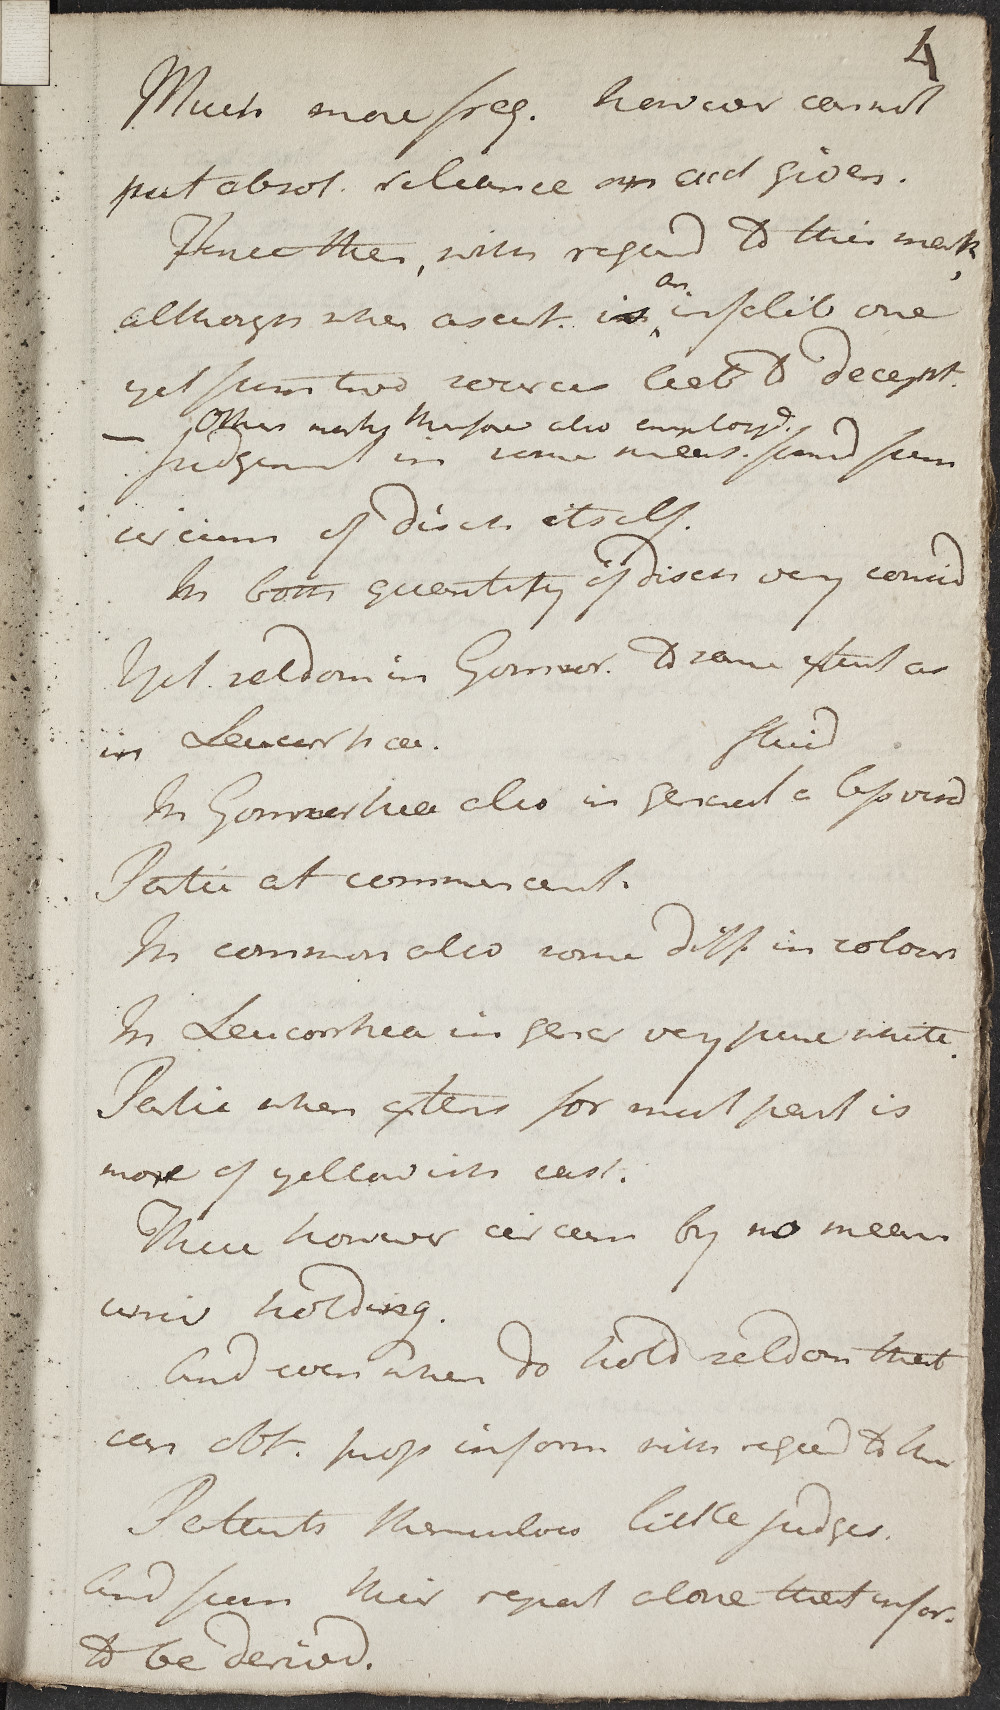 4
Much more freq. however cannot
put absol. reliance on acct given.
Hence then, with regard to this mark,
an
although when ascert. is infalib one
yet from two sources lieb to decept.
Other marks therefore also employd.
— Judgment in some meas. formd from
circum of disch itself.
In both quantity of disch very consid
Yet seldom in Gonorr. to same extent as
in Leucorrhœa.
fluid
In Gonorrhea also in general a less viscid
Partic at commencent.
In common also some diff. in colour
In Leucorrhea in gener very pure white.
Partic when extens for most part is
more of yellowish cast.
These however circum by no means
univ holding.
And even when do hold seldom that
can obt. prop inform with regard to them
Patients themselves little judges.
And from their report alone that infor.
to be derived.